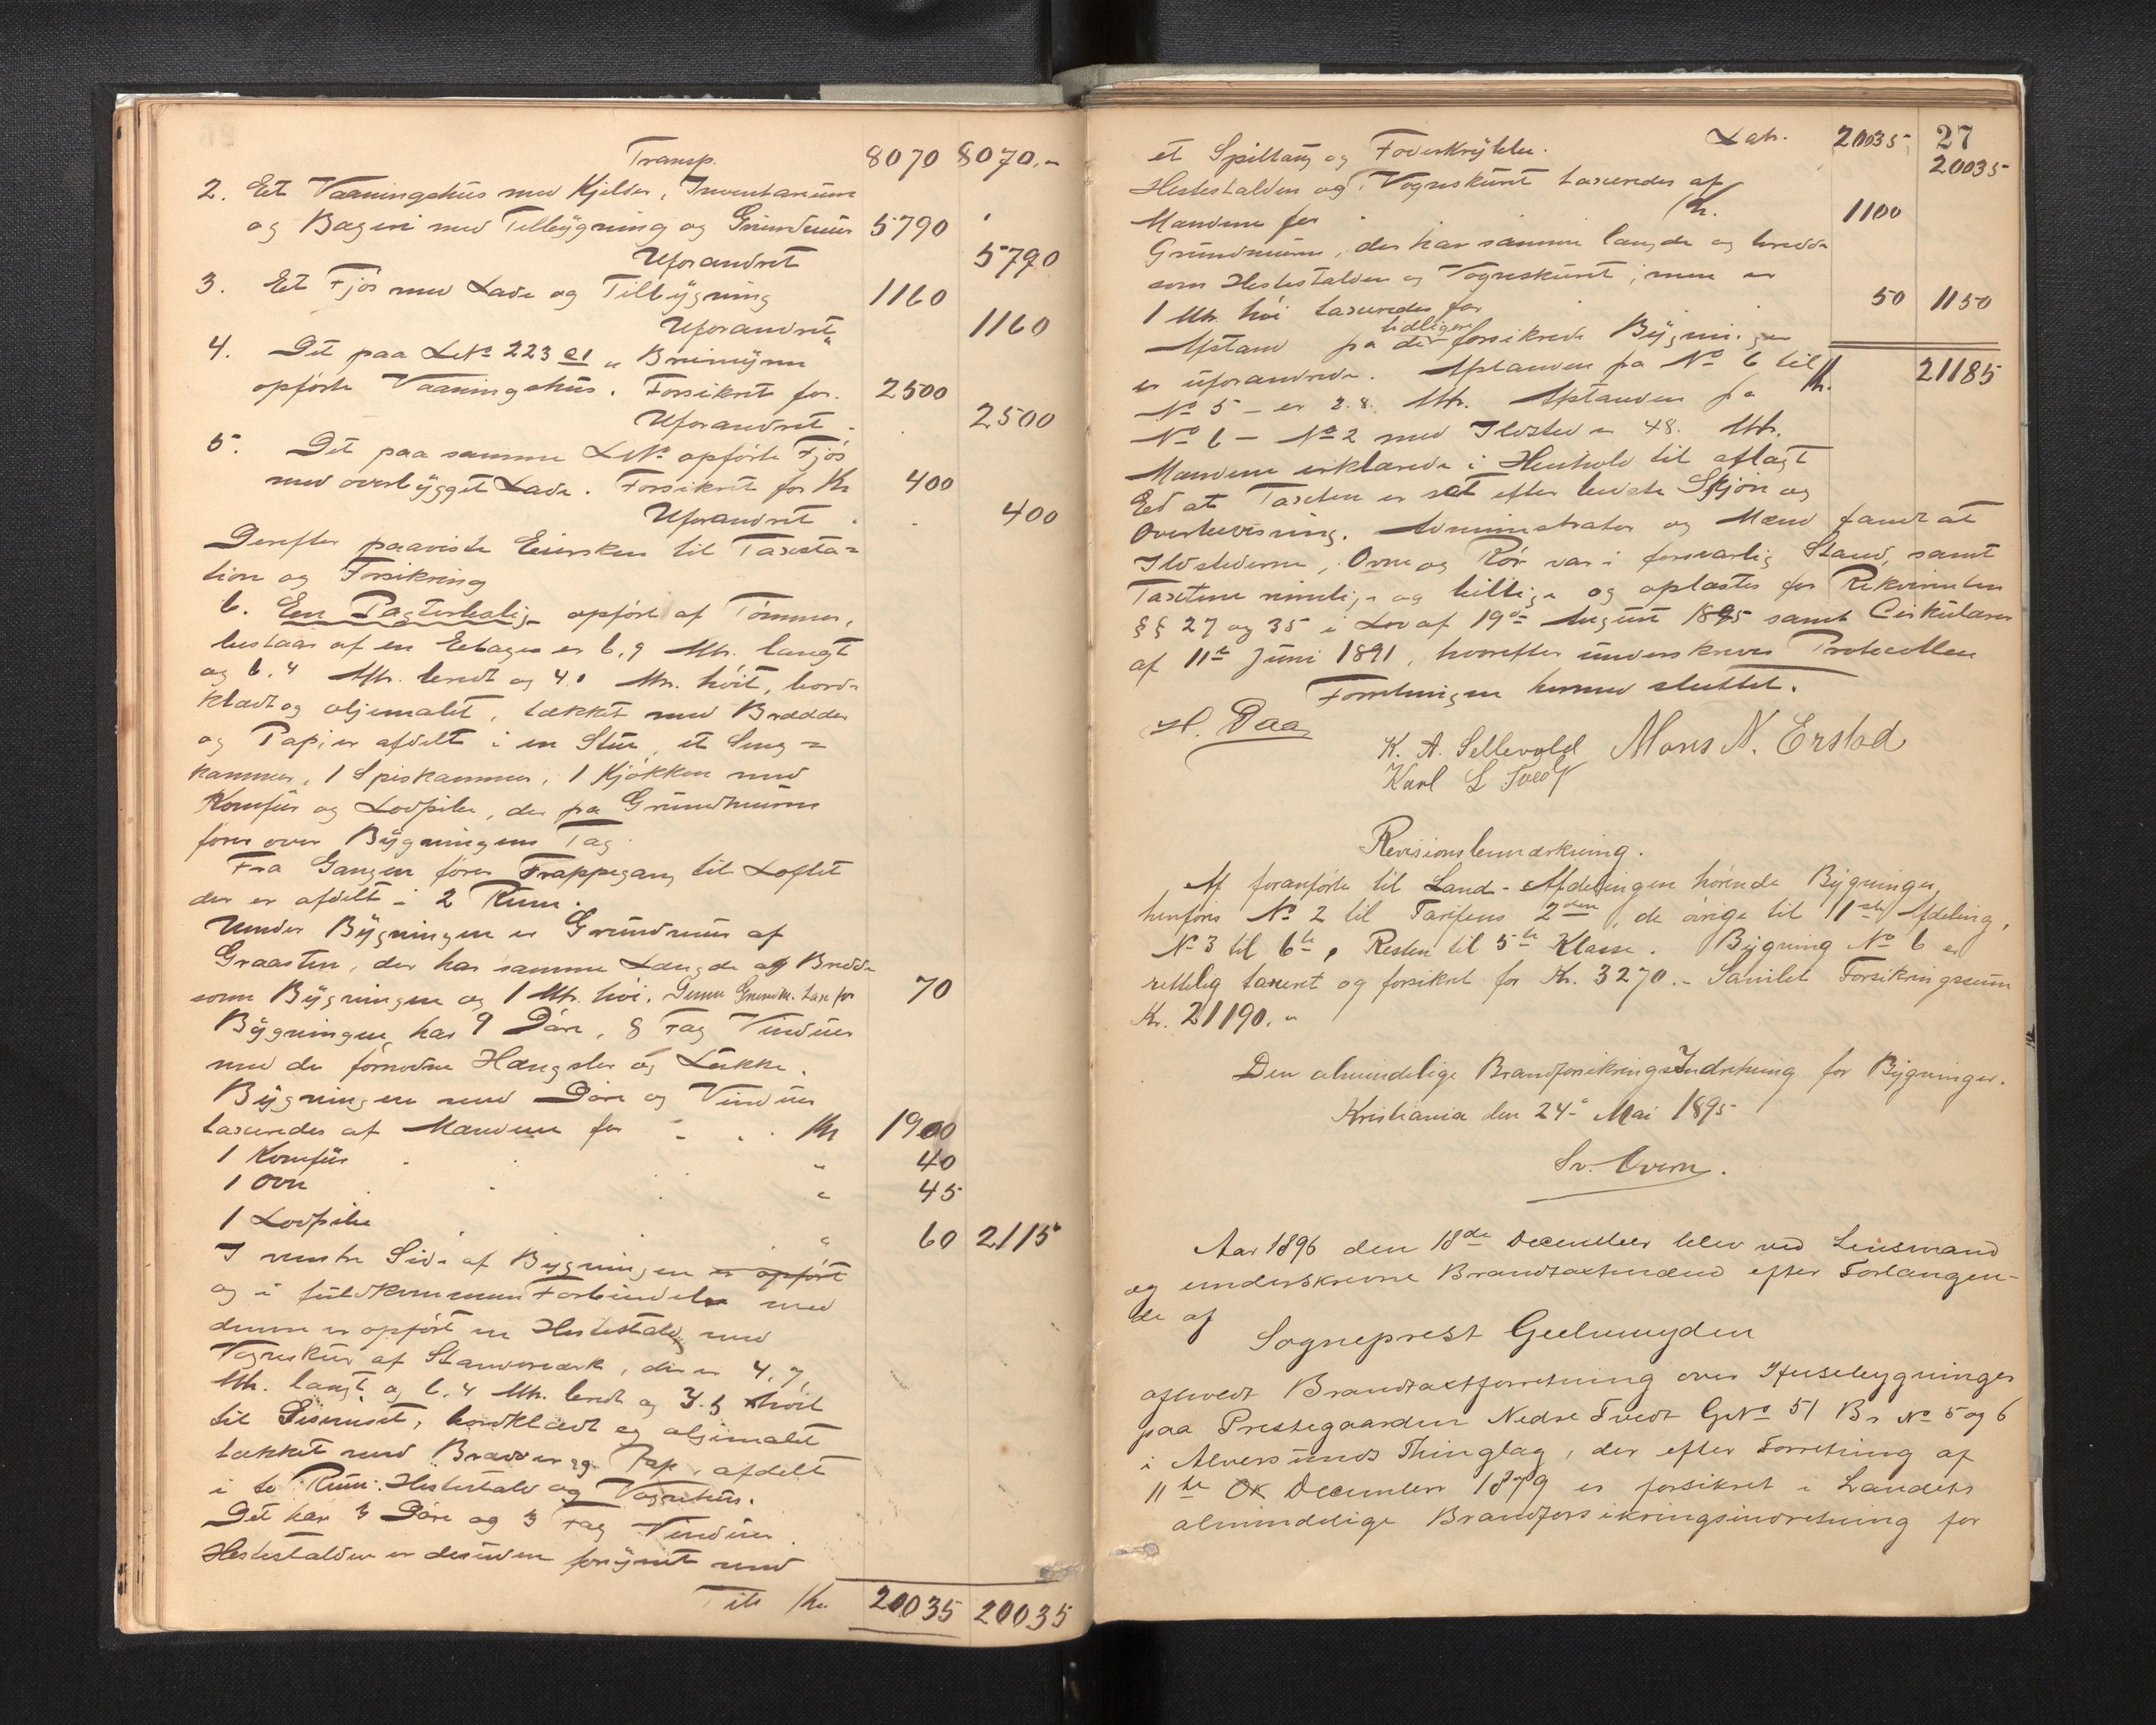 Transp. 8070 8070.-
2. Et Vaaningshus med Kjelder, Inventarium
og Bageri med Tilbygning og Grundmur 5790
Uforandret 5790
3. Et Fjös med Lade og Tilbygning 1160
Uforandret 1160
4. Det paa LNo 223 a1 "Breimyra
opförte Vaaningshus. Forsikret for. 2500
Uforandret 2500
5. Det paa samme LNo opförte Fjös
med overbygget Lade. Forsikret for Kr 400
Uforandret 400
Derefter paaviste Eiersken til Taxta=
tion og Forsikring
6. Een Pagterbolig opfört af Tömmer,
bestaar af en Etage er 6.9 Mtr. langt
og 6.4 Mtr. bredt og 4.1 Mtr. höit, bord=
klædt og oljemalet, tækket med Brædder
og Papir afdelt i en Stue, et Seng=
kammer, 1 Spiskammer, 1 Kjökken med
Komfür og Lodpibe, der fra Grundmuren
förer over Bygningens Tag.
Fra Gangen förer Trappegang til Loftet
der er afdelt i 2 Rum.
Under Bygningen er Grundmur af
Graasten, der har samme Længde og Bredde
som Bygningen og 1 Mtr. höi. Denne Grundm. taxr for 70
Bygningen har 9 Döre, 8 Fag Vinduer
med de fornödne Hængsler og Lukke.
Bygningen med Döre og Vinduer
taxeredes af Mændene for Kr 1900
1 Komfür " 40
1 Ovn " 45
1 Lodpibe " 60 2115
I venstre Side af Bygningen er opfört
og i fuldkommen Forbindelse med
denne er opfört en Hestestald med
Vognskur af Stavværk, der er 4.7,
Mtr. langt og 6.4 Mtr. bredt og 3.5 höit
til Gesimset, bordklædt og oljemalet
tækket med Brædder og Pap, afdelt
i to Rum: Hestestald og Vognskur.
Det har 3 Döre og 3 Fag Vinduer
Hestestalden er desuden forsynet med
Tils Kr. 20035 20035
27
et Spiltaug og Foderkrybbe. Lat. 20035 20035
Hestestalden og Vognskuret taxeredes af
Mændene for Kr. 1100
Grundmuren, der har samme længde og bredde
som Hestestalden og Vognskuret, men er
1 Mtr. höi taxeredes for 50 1150
Afstand fra de tidligere forsikrede Bygninger
er uforandrede. Afstanden fra No 6 til Kr. 21185
No 5 - er 2.8. Mtr. Afstanden fra
No 6 - No 2 med Ildsted er 48. Mtr.
Mændene erklærede i Henhold til aflagt
Ed at Taxten er sat efter bedste Skjön og
Overbevisning. Administrator og Mænd fandt at
Ildstederne, Ovne og Rör var i forsvarlig Stand, samt
Taxterne rimelige og billige og oplæstes for Rekvirenten
§§ 27 og 35 i Lov af 19de August 1845 samt Cirkulære
af 11te Juni 1891, hvorefter underskreves Protocollen
Forretningen hermed sluttet.
H. Daae
K. A. Sellevold Mons N. Erstad
Karl L Tvedt
Revisionsbemærkning.
Af foranförte til Land-Afdelingen hörende Bygninger,
henföres No 2 til Tarifens 2den, de övrige til 1ste Afdeling,
No 3 til 6te, Resten til 5te Klasse. Bygning No 6 er
rettelig taxeret og forsikret for Kr. 3270.- Samlet Forsikringssum
Kr. 21190.-
Den almindelige BrandforsikringsIndretning for Bygninger.
Kristiania den 24de Mai 1895
Sv. Övern.
Aar 1896 den 18de December blev ved Lensmand
og underskrevne Brandtaxtmænd efter Forlangen-
de af
Sogneprest Geelmuyden
afholdt Brandtaxtforretning over Husebygninger
paa Prestegaarden Nedre Tvedt GNo 51 Br No 5 og 6
i Alversunds Thinglag, der efter Forretning af
11te Ok December 1879 er forsikret i Landets
almindelige Brandforsikringsindretning for